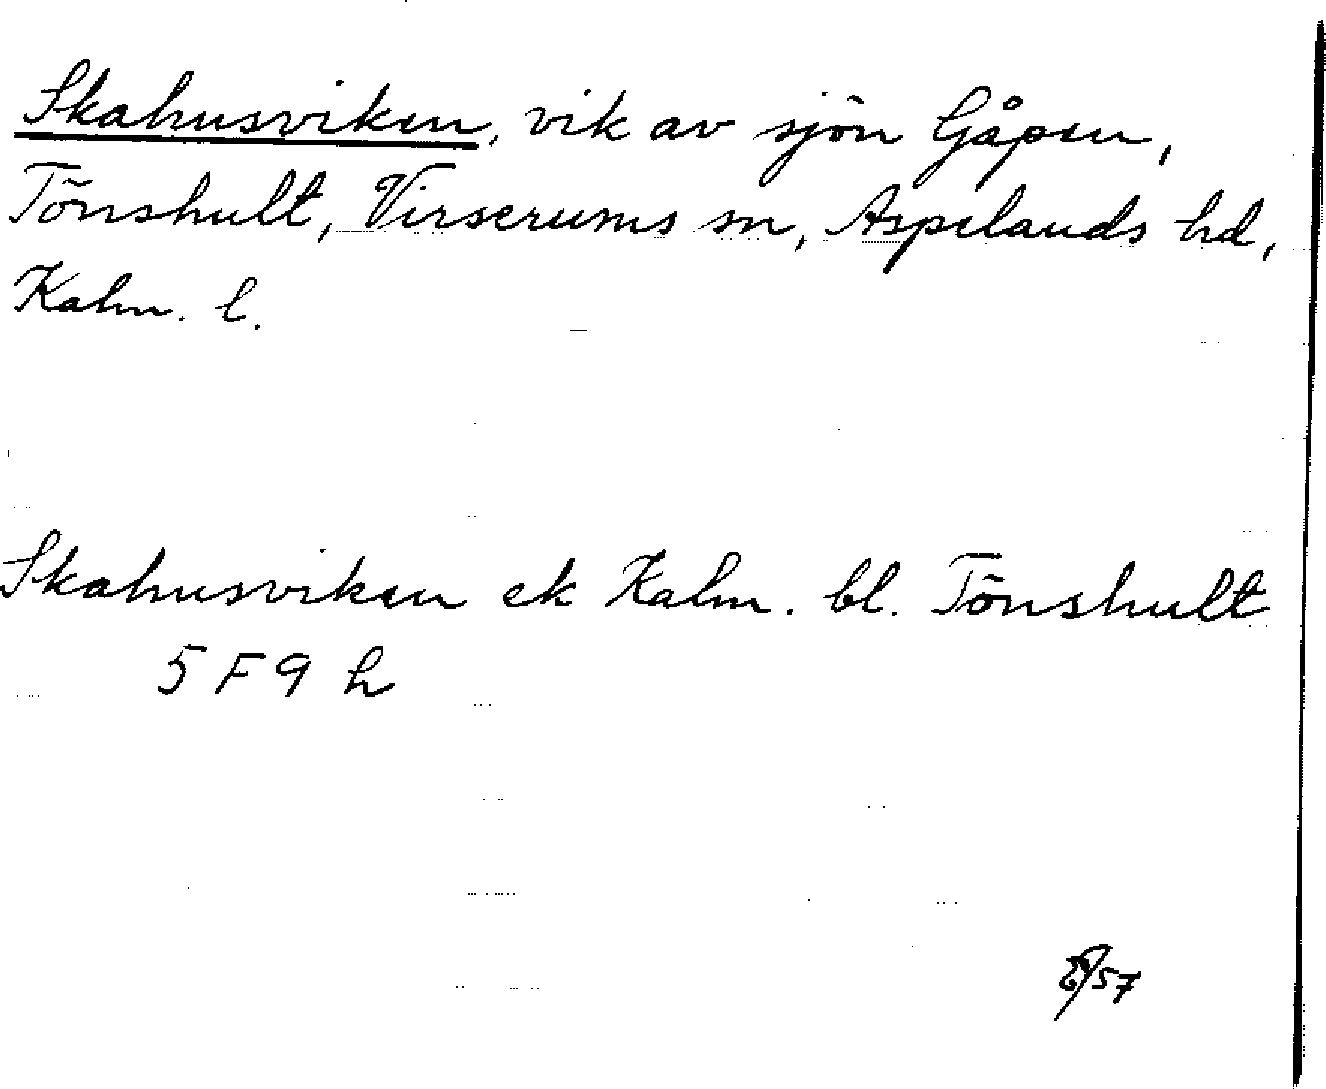 Skahusviken, vik av sjön Gåpen,
Tönshult, Virserums sn, Aspelands hd,
Kalm. l.
Skahusviken ek Kalm. bl. Tönshult
5 F 9 h
57